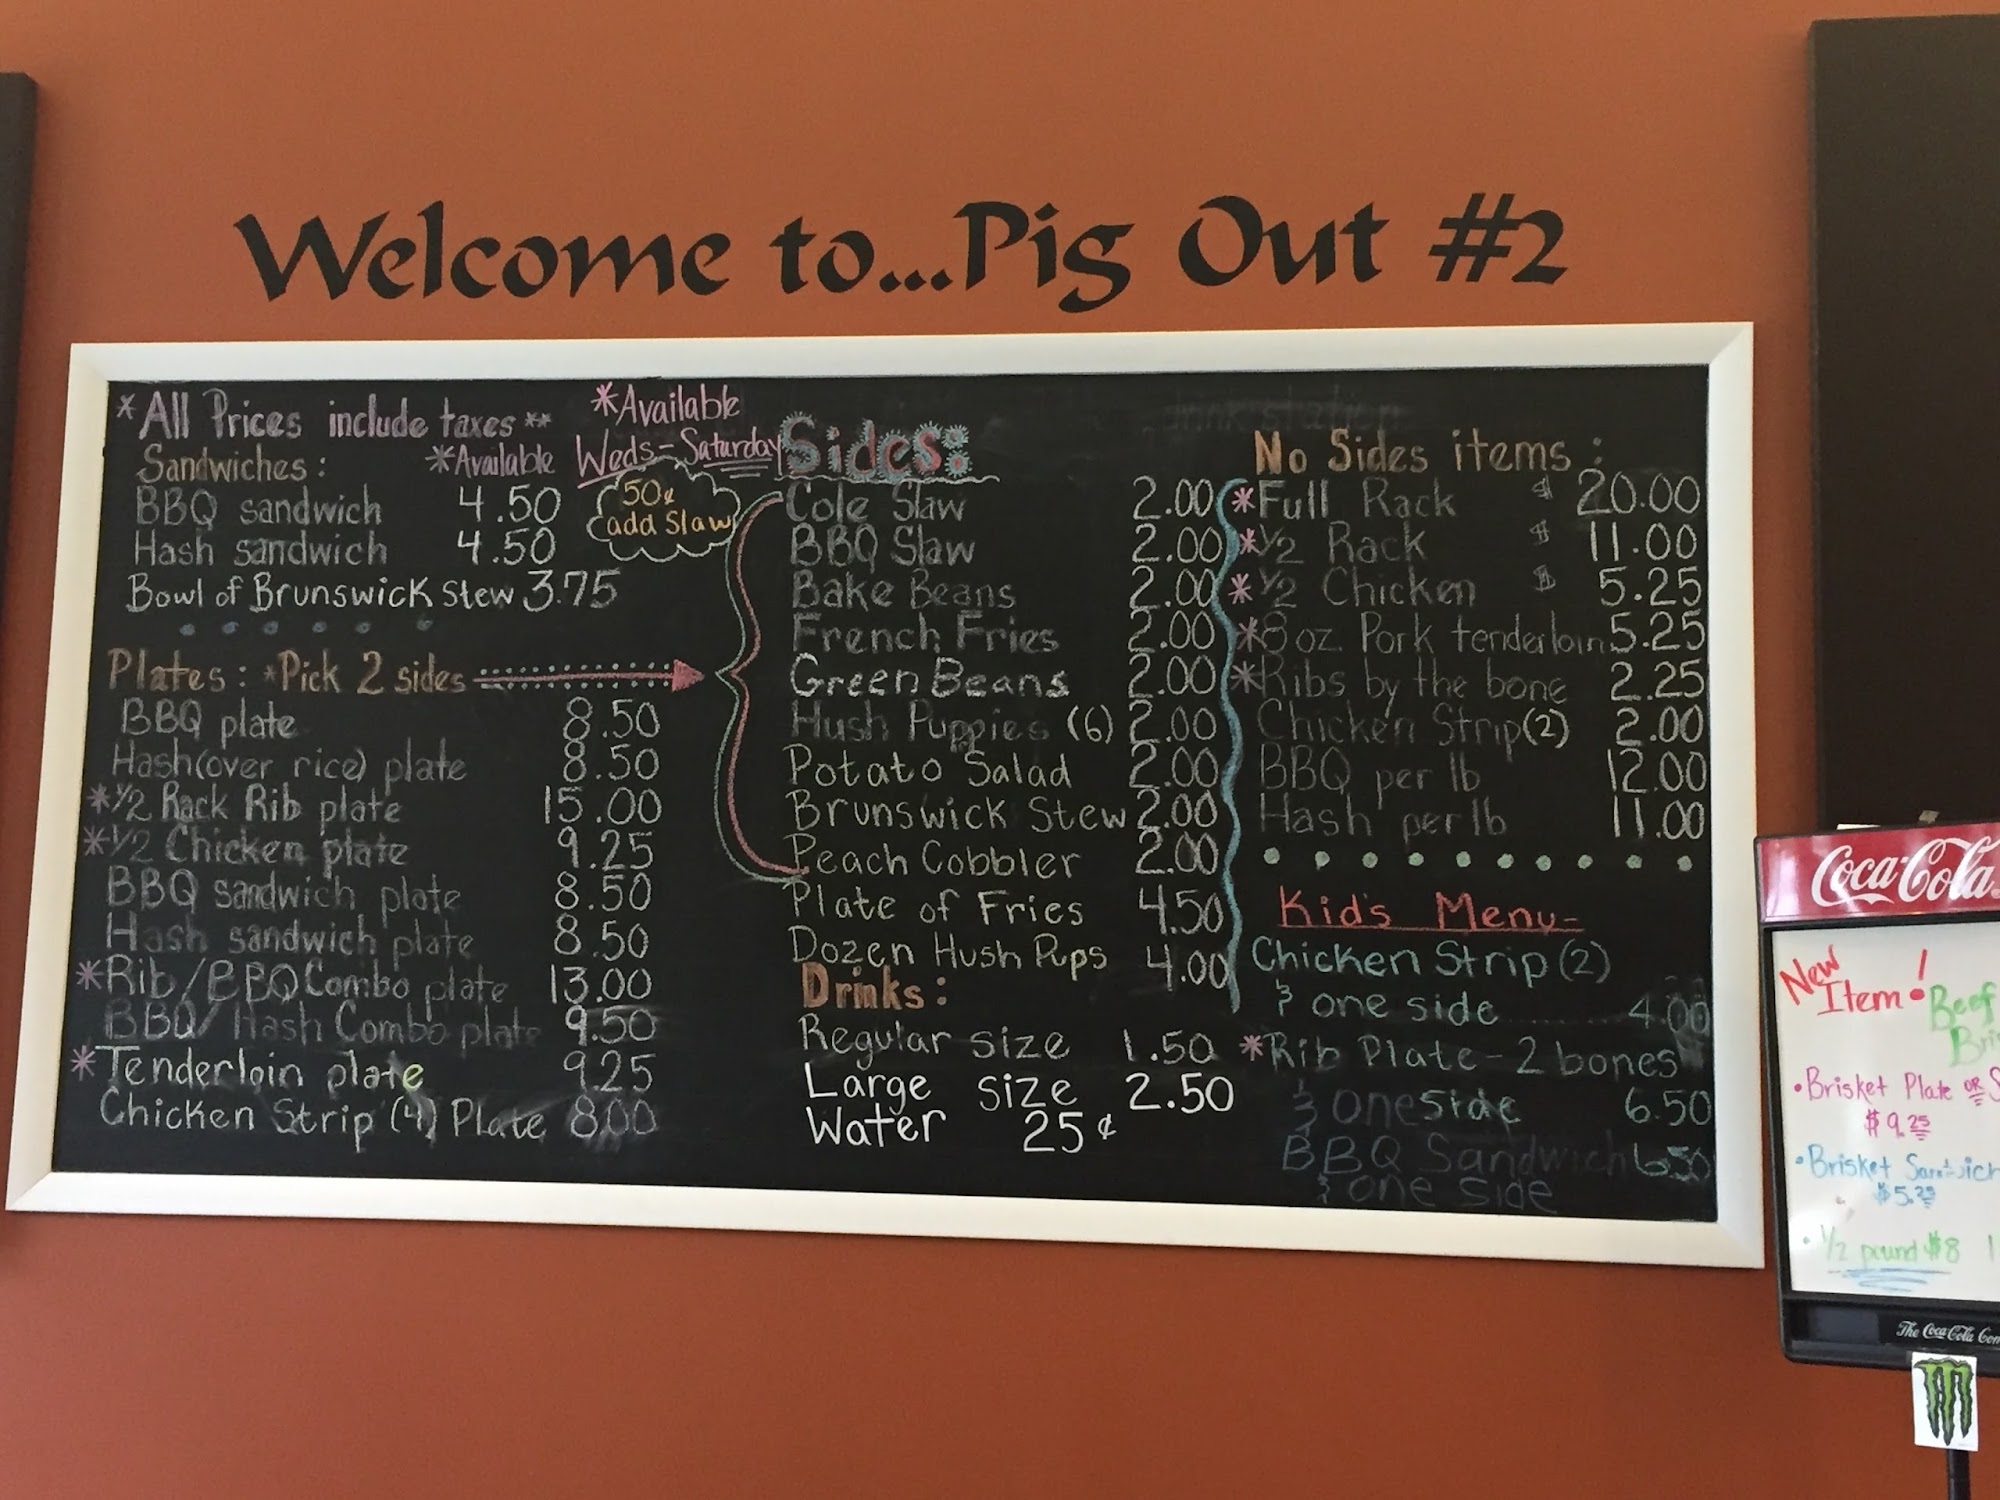 Welcome to...Pig Out #2
*All Prices include taxes**
*Available
*Available
Weds-Saturday
Sandwiches:
BBQ sandwich 4.50
Hash sandwich 4.50
50¢
add Slaw
Bowl of Brunswick Stew 3.75
Plates: *Pick 2 sides
BBQ plate 8.50
Hash(over rice) plate 8.50
*1/2 Rack Rib plate 15.00
*1/2 Chicken plate 9.25
BBQ sandwich plate 8.50
Hash sandwich plate 8.50
*Rib/BBQ Combo plate 13.00
BBQ/Hash Combo plate 9.50
*Tenderloin plate 9.25
Chicken Strip (4) Plate 8.00
Sides:
Cole Slaw 2.00
BBQ Slaw 2.00
Bake Beans 2.00
French Fries 2.00
Green Beans 2.00
Hush Puppies (6) 2.00
Potato Salad 2.00
Brunswick Stew 2.00
Peach Cobbler 2.00
Plate of Fries 4.50
Dozen Hush Pups 4.00
Drinks:
Regular size 1.50
Large size 2.50
Water 25¢
No Sides items:
*Full Rack $ 20.00
*1/2 Rack $ 11.00
*1/2 Chicken $ 5.25
*8 oz. Pork tenderloin 5.25
*Ribs by the bone 2.25
Chicken Strip(2) 2.00
BBQ per lb 12.00
Hash per lb 11.00
Kid's Menu-
Chicken Strip (2)
& one side 4.00
*Rib Plate - 2 bones
& one side 6.50
BBQ Sandwich 6.50
& one side
Coca-Cola
New
Item!
Beef
•Brisket Plate OR
$9.25
•Brisket Sandwich
$5.25
•1/2 pound $8
The Coca-Cola